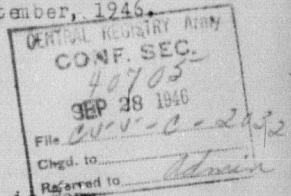 tember, 1946.
CENTRAL REGISTRY Army
CONF. SEC.
40705
SEP 28 1946
File CVV-C-2032
Chgd. to
Referred to Admin